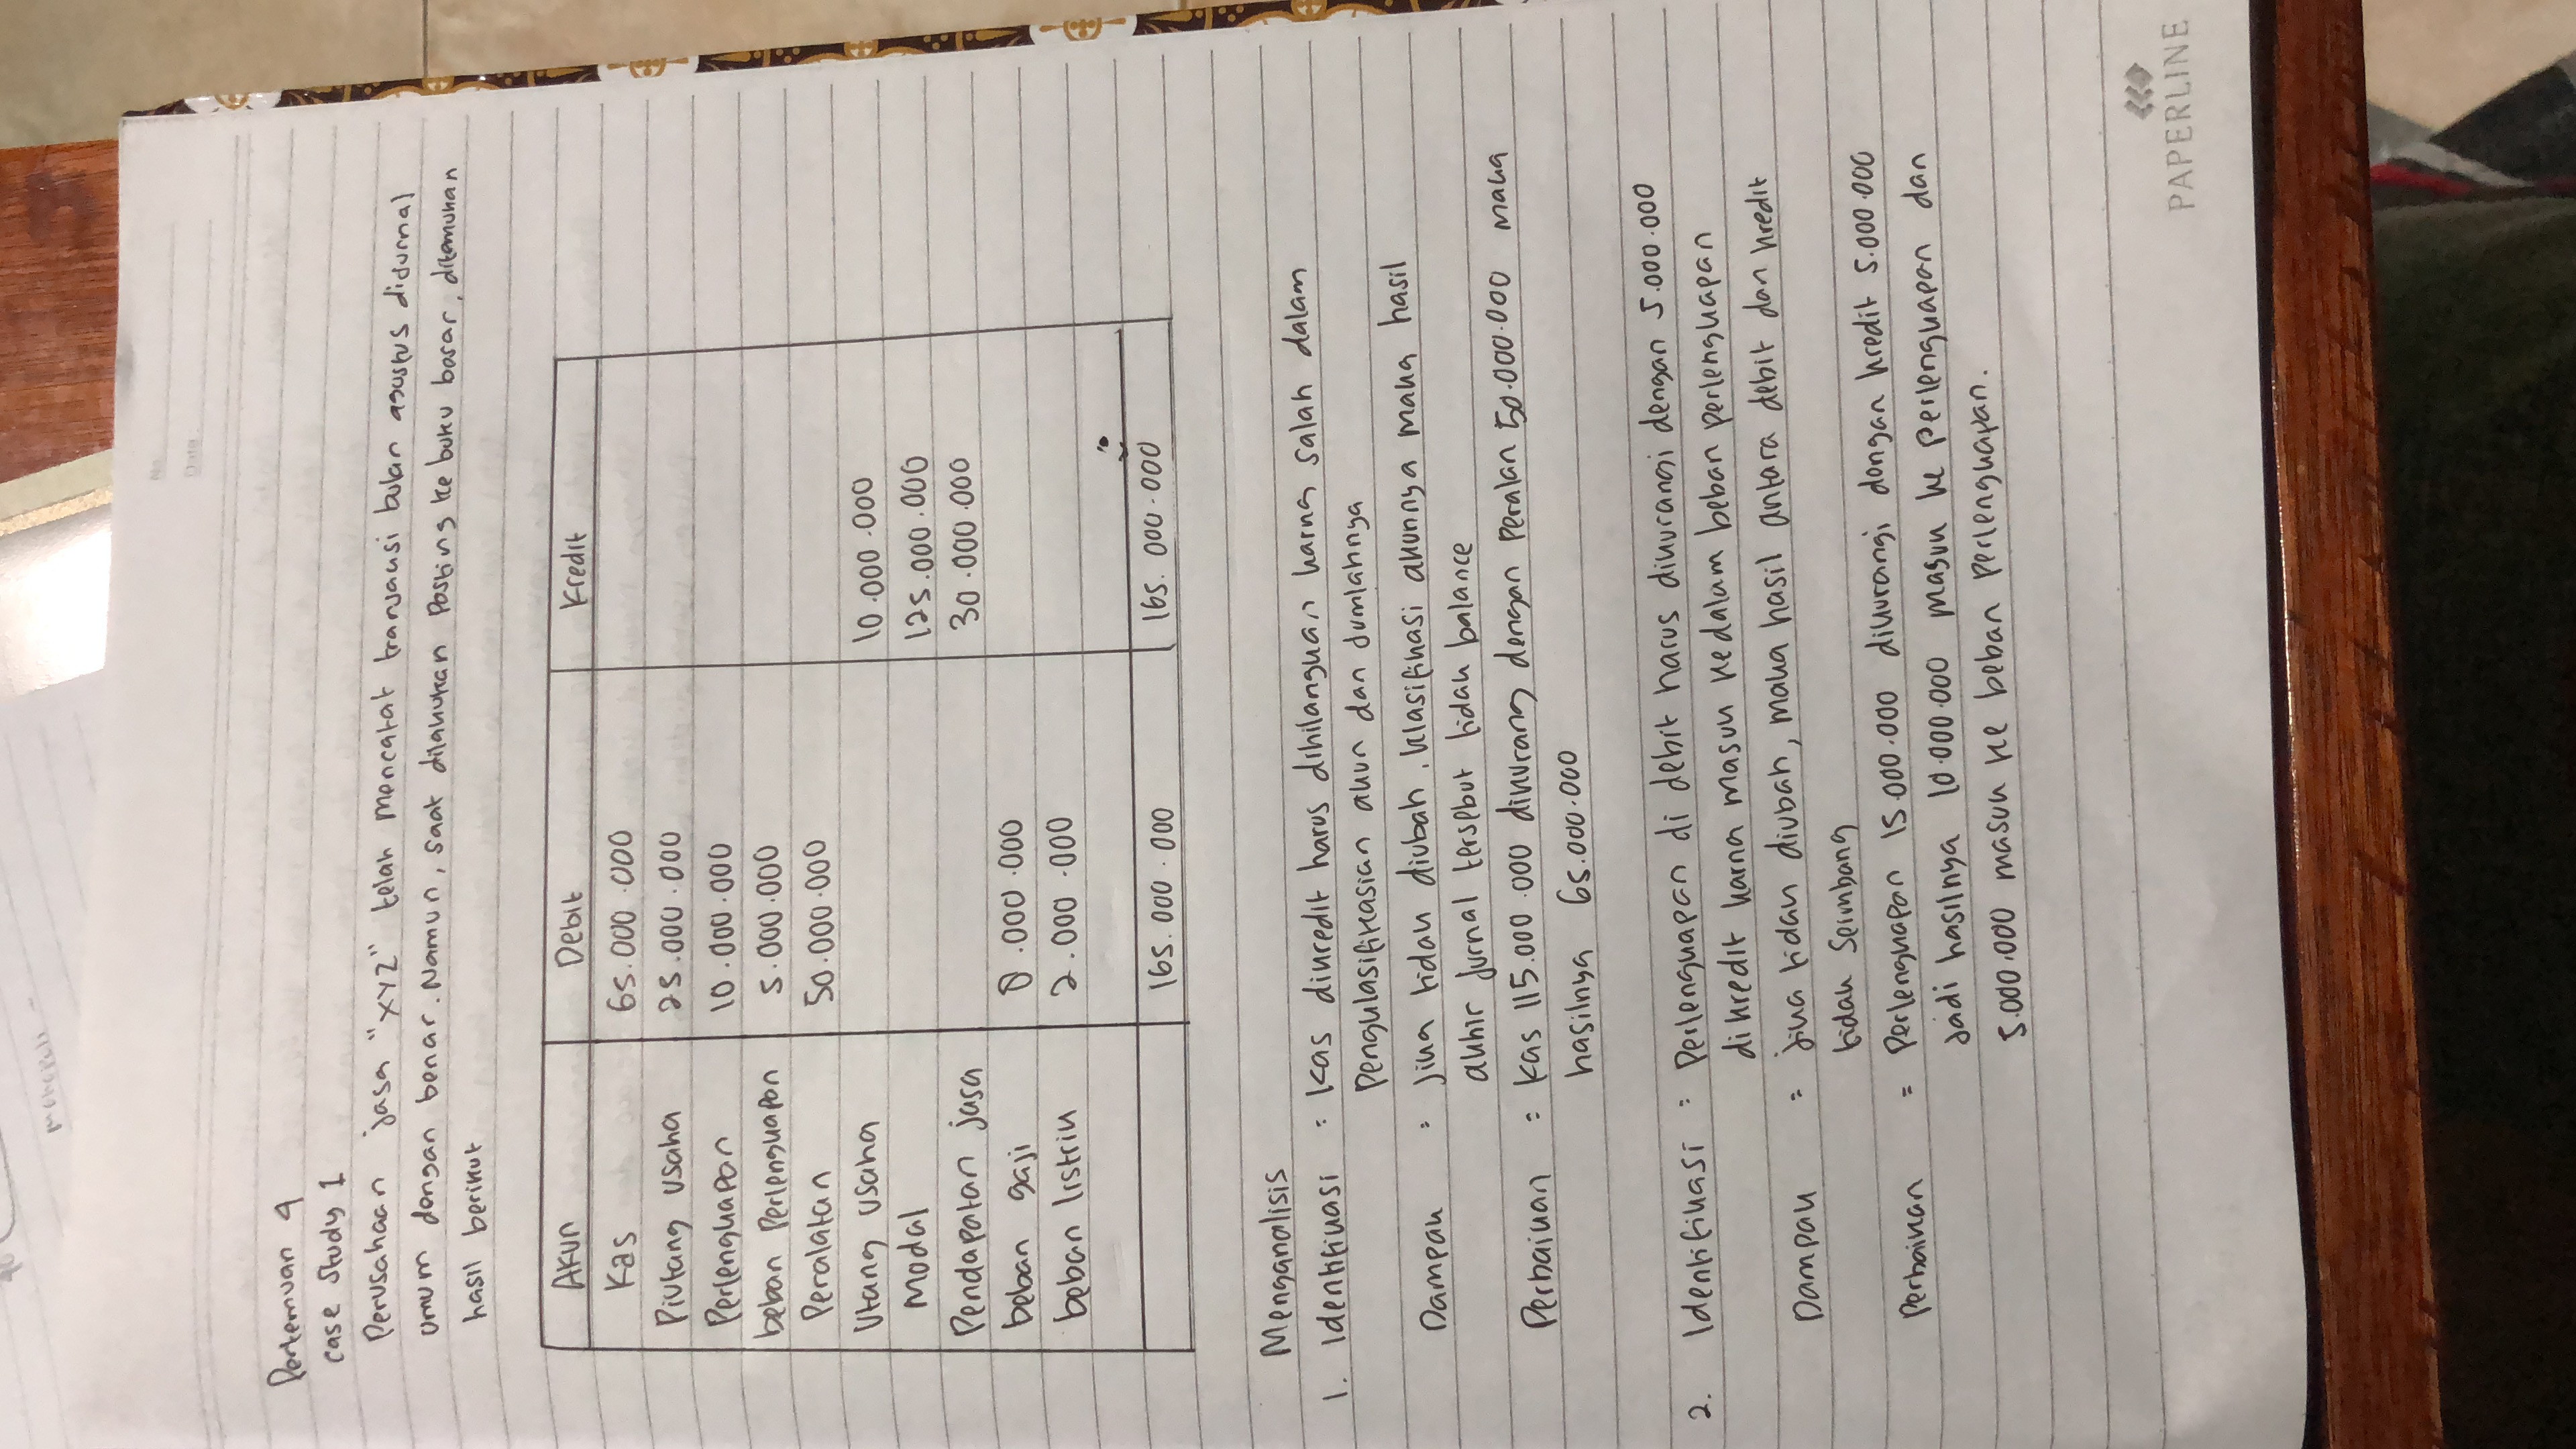 No.
Date
Pertemuan 4
case study 1
Perusahaan jasa "XYZ" telah mencatat transaksi bulan agustus dijurnal
umum dengan benar. Namun, saat dilakukan Posting ke buku besar, ditemukan
hasil berikut
Akun Debit Kredit
Kas 65.000.000
Piutang usaha 25.000.000
Perlengkapan 10.000.000
beban Perlengkapan 5.000.000
Peralatan 50.000.000
Utang usaha 10.000.000
Modal 125.000.000
Pendapatan jasa 30.000.000
beban gaji 8.000.000
beban listrik 2.000.000
165.000.000 165.000.000
Menganalisis
1. Identifikasi : Kas dikredit harus dihilangkan karna salah dalam
Pengklasifikasian akun dan jumlahnya
Dampak : Jika tidak diubah, klasifikasi akunnya maka hasil
akhir jurnal tersebut tidak balance
Perbaikan : Kas 115.000.000 dikurang dengan Peralan 50.000.000 maka
hasilnya 65.000.000
2. Identifikasi : Perlengkapan di debit harus dikurangi dengan 5.000.000
dikredit karna masuk kedalam beban perlengkapan
Dampak = jika tidak diubah, maka hasil antara debit dan kredit
tidak seimbang
Perbaikan = Perlengkapan 15.000.000 dikurangi dengan kredit 5.000.000
jadi hasilnya 10.000.000 masuk ke perlengkapan dan
5.000.000 masuk ke beban perlengkapan.
PAPERLINE